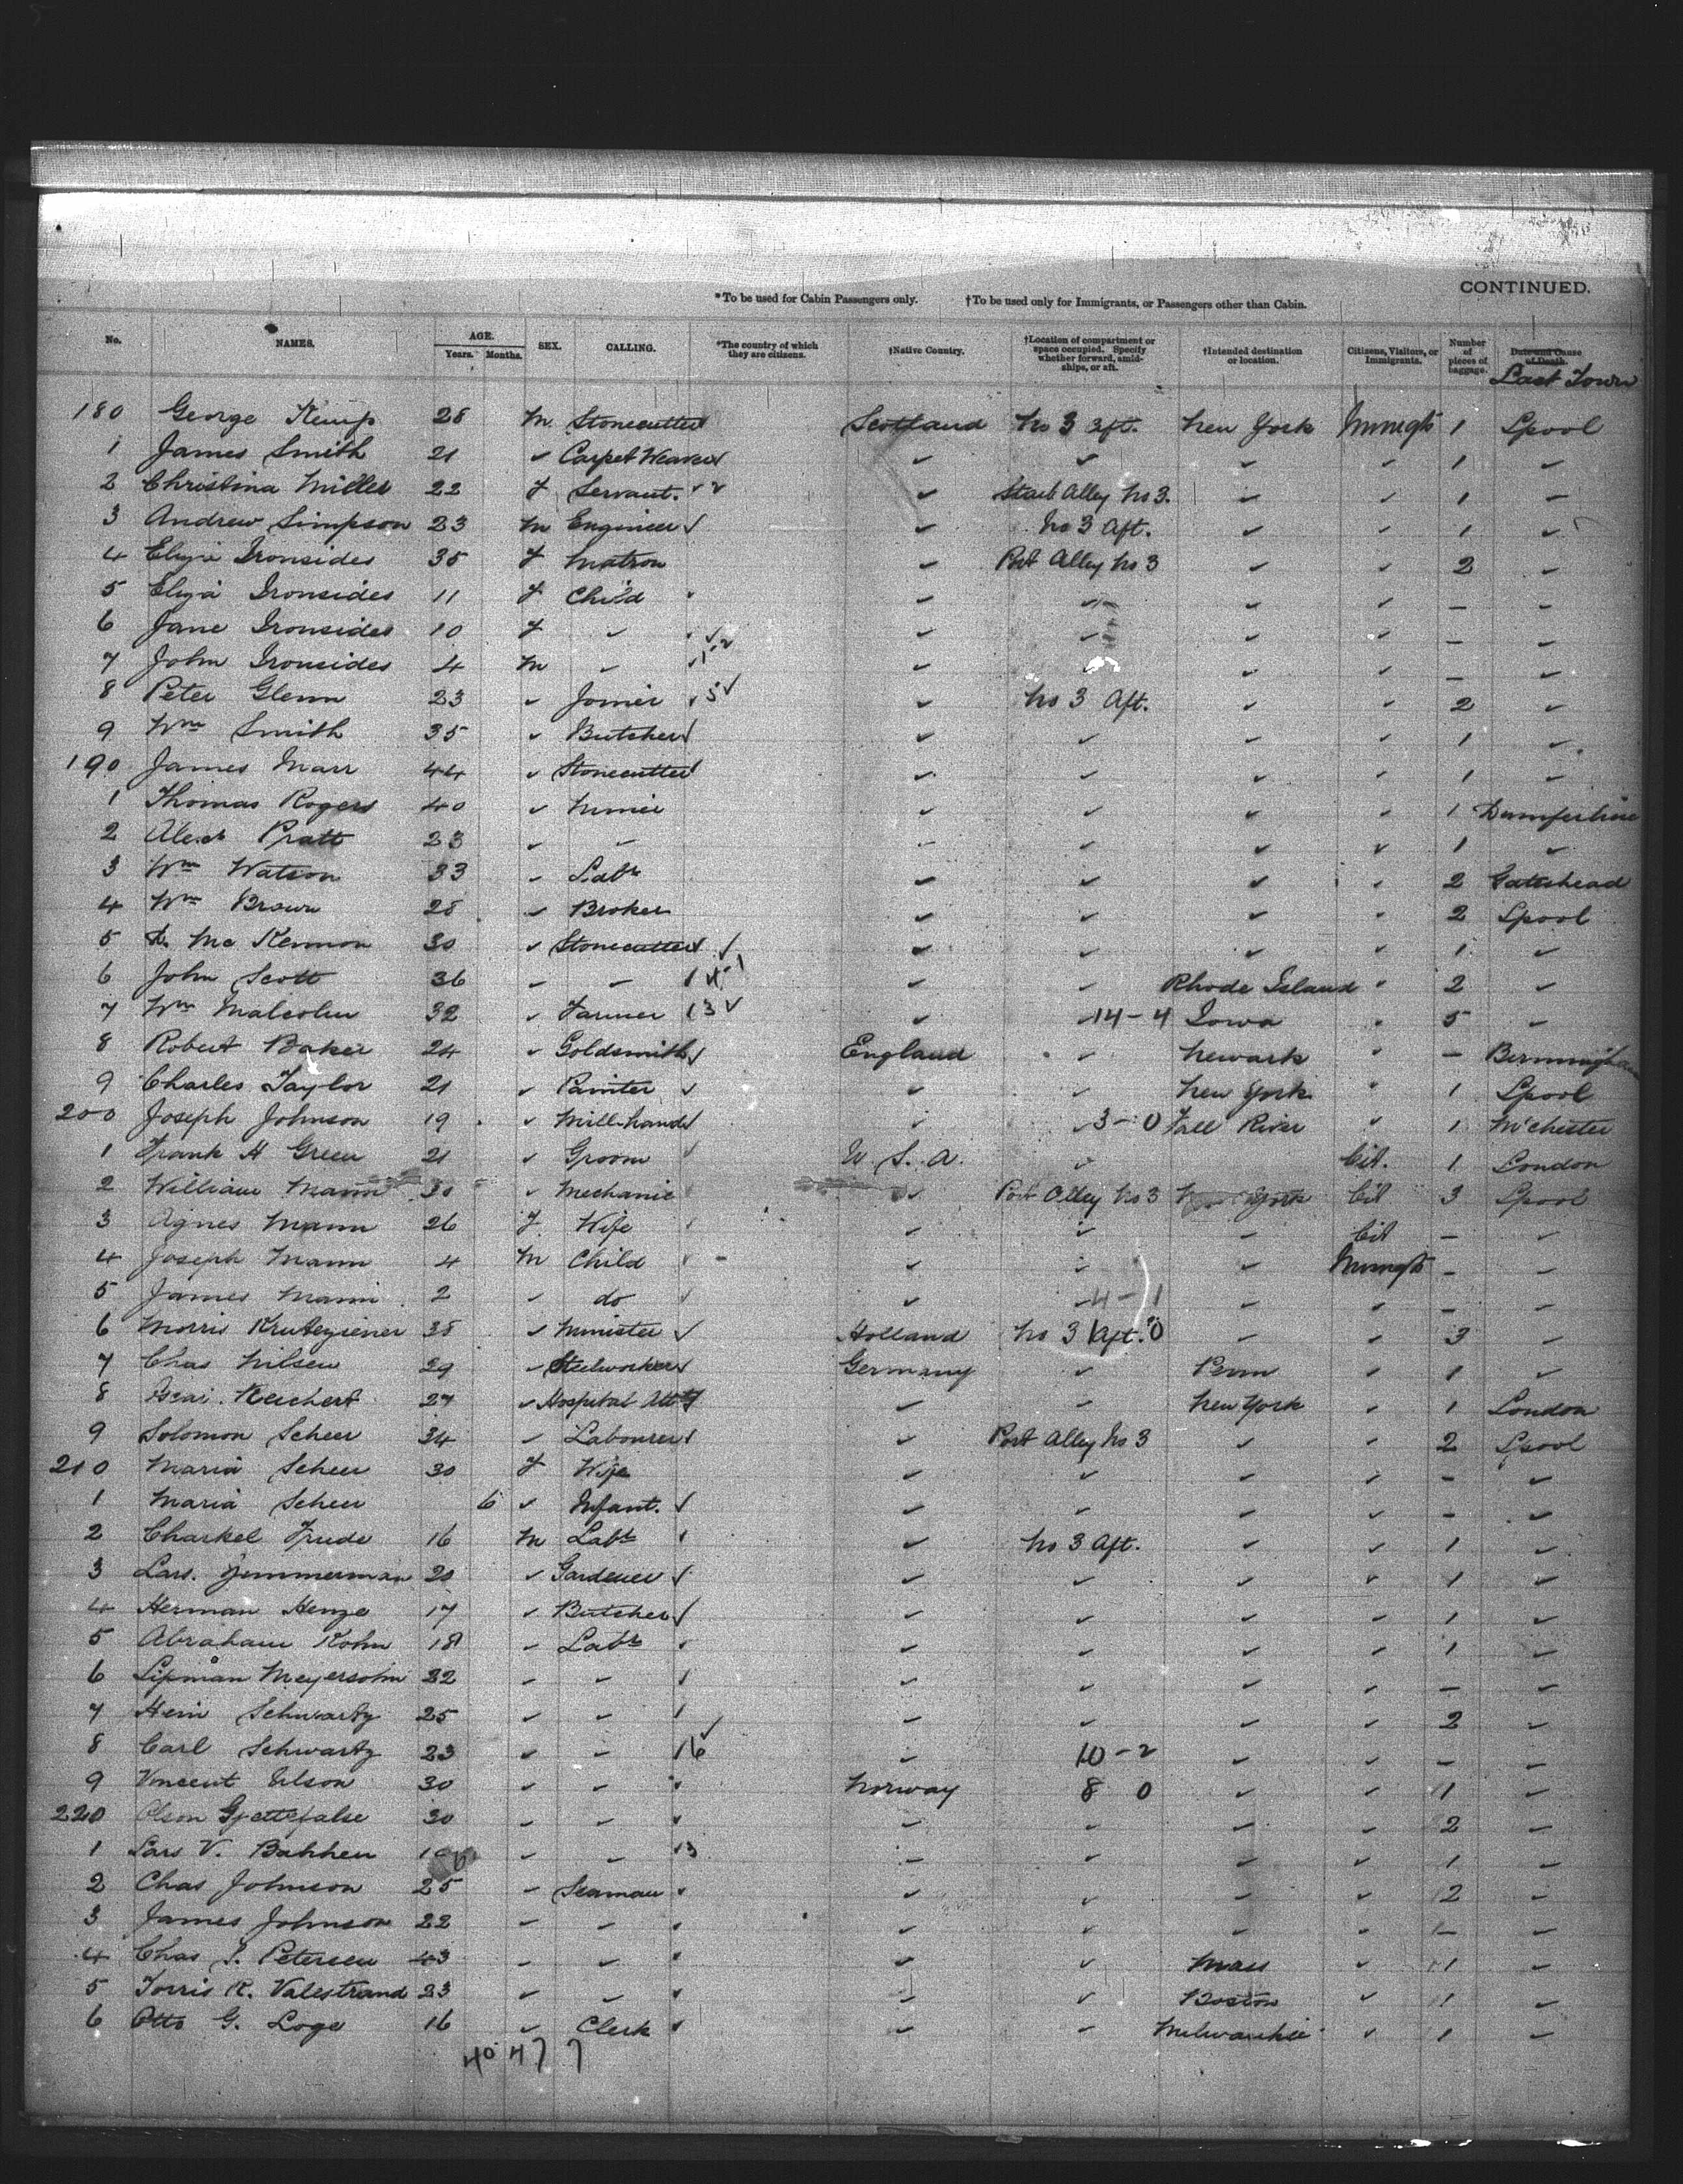 CONTINUED.
*To be used for Cabin Passengers only. †To be used only for Immigrants, or Passengers other than Cabin.
No. NAMES. AGE. Years. Months. SEX. CALLING. *The country of which they are citizens. †Native Country. †Location of compartment or space occupied. Specify whether forward, amidships, or aft. †Intended destination or location. Citizens, Visitors, or Immigrants. Number of pieces of baggage. Date and Cause of Death. Last Town
180 George Kemp 28 M Stonecutter Scotland No 3 Aft. New York Immgts 1 Lpool
1 James Smith 21 ✓ Carpet Weaver ✓ ✓ ✓ ✓ 1 ✓
2 Christina Miller 22 F Servant. ✓ Starb Alley No 3. ✓ ✓ 1 ✓
3 Andrew Simpson 23 M Engineer ✓ No 3 Aft. ✓ ✓ 1 ✓
4 Eliza Ironsides 35 F Matron ✓ Port Alley No 3 ✓ ✓ 2 ✓
5 Eliza Ironsides 11 F Child ✓ ✓ ✓ ✓ – ✓
6 Jane Ironsides 10 F ✓ ✓ ✓ ✓ ✓ – ✓
7 John Ironsides 4 M ✓ ✓ ✓ ✓ ✓ – ✓
8 Peter Glenn 23 ✓ Joiner ✓ No 3 Aft. ✓ ✓ 2 ✓
9 Wm Smith 35 ✓ Butcher ✓ ✓ ✓ ✓ 1 ✓
190 James Marr 44 ✓ Stonecutter ✓ ✓ ✓ ✓ 1 ✓
1 Thomas Rogers 40 ✓ Miner ✓ ✓ ✓ ✓ 1 Dumferline
2 Alexr Pratt 23 ✓ ✓ ✓ ✓ ✓ ✓ 1 ✓
3 Wm Watson 33 ✓ Labr ✓ ✓ ✓ ✓ 2 Gateshead
4 Wm Brown 28 ✓ Broker ✓ ✓ ✓ ✓ 2 Lpool
5 Mc Kennon 30 ✓ Stonecutter ✓ ✓ ✓ ✓ 1 ✓
6 John Scott 36 ✓ ✓ ✓ ✓ Rhode Island ✓ 2 ✓
7 Wm Malcolm 32 ✓ Farmer ✓ ✓ 14-4 Iowa ✓ 5 ✓
8 Robert Baker 24 ✓ Goldsmith England ✓ Newark ✓ – Birmingham
9 Charles Taylor 21 ✓ Painter ✓ ✓ New York ✓ 1 Lpool
200 Joseph Johnson 19 ✓ Mill-hand ✓ ✓ 3-0 Fall River ✓ 1 M'chester
1 Frank H Green 21 ✓ Groom U. S. A. ✓ Cit. 1 London
2 William Mann 30 ✓ Mechanic ✓ Port Alley No 3 New York Cit 3 Lpool
3 Agnes Mann 26 F. Wife ✓ ✓ ✓ Cit – ✓
4 Joseph Mann 4 M Child ✓ ✓ ✓ Immgts – ✓
5 James Mann 2 ✓ do ✓ ✓ 4-1 ✓ ✓ – ✓
6 Morris 38 ✓ Minister Holland No 3 Aft. ✓ ✓ 3 ✓
7 Chas Nilsen 29 ✓ Steelworker Germany ✓ Penn ✓ 1 ✓
8 Oscar Reichert 27 ✓ Hospital Attdt ✓ ✓ New York ✓ 1 London
9 Solomon Scheer 34 ✓ Labourer ✓ Port Alley No 3 ✓ ✓ 2 Lpool
210 Maria Scheer 30 F Wife ✓ ✓ ✓ ✓ – ✓
1 Maria Scheer 6 ✓ Infant. ✓ ✓ ✓ ✓ – ✓
2 Charkel Frude 16 M Labr ✓ No 3 Aft. ✓ ✓ 1 ✓
3 Lars. Zimmerman 20 ✓ Gardener ✓ ✓ ✓ ✓ 1 ✓
4 Herman Henze 17 ✓ Butcher ✓ ✓ ✓ ✓ 1 ✓
5 Abraham Kohn 18 ✓ Labr ✓ ✓ ✓ ✓ 1 ✓
6 Lipman Meyersohn 22 ✓ ✓ ✓ ✓ ✓ ✓ – ✓
7 Hein Schwartz 25 ✓ ✓ ✓ ✓ ✓ ✓ 2 ✓
8 Carl Schwartz 23 ✓ ✓ 16 ✓ 10-2 ✓ ✓ – ✓
9 Vincent 30 ✓ ✓ Norway 8 0 ✓ ✓ 1 ✓
220 Olson 30 ✓ ✓ ✓ ✓ ✓ ✓ 2 ✓
1 Lars V. Bahhen ✓ ✓ 13 ✓ ✓ ✓ ✓ 1 ✓
2 Chas Johnson 25 ✓ Seaman ✓ ✓ ✓ ✓ 2 ✓
3 James Johnson 22 ✓ ✓ ✓ ✓ ✓ ✓ 1 ✓
4 Chas Petersen 43 ✓ ✓ ✓ ✓ Mass ✓ 1 ✓
5 Torris K. Valestrand 23 ✓ ✓ ✓ ✓ Boston ✓ 1 ✓
6 Otto G. Loge 16 ✓ Clerk ✓ ✓ Milwaukie ✓ 1 ✓
40 47 7